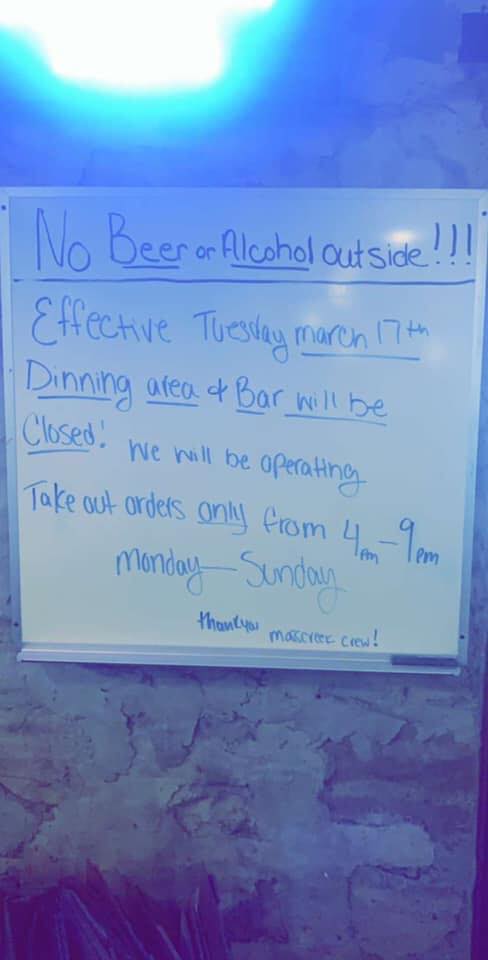 No Beer or Alcohol outside!!!
Effective Tuesday march 17th
Dinning area & Bar will be
Closed! We will be operating
Take out orders only from 4pm-9pm
Monday-Sunday
thankyou
crew!